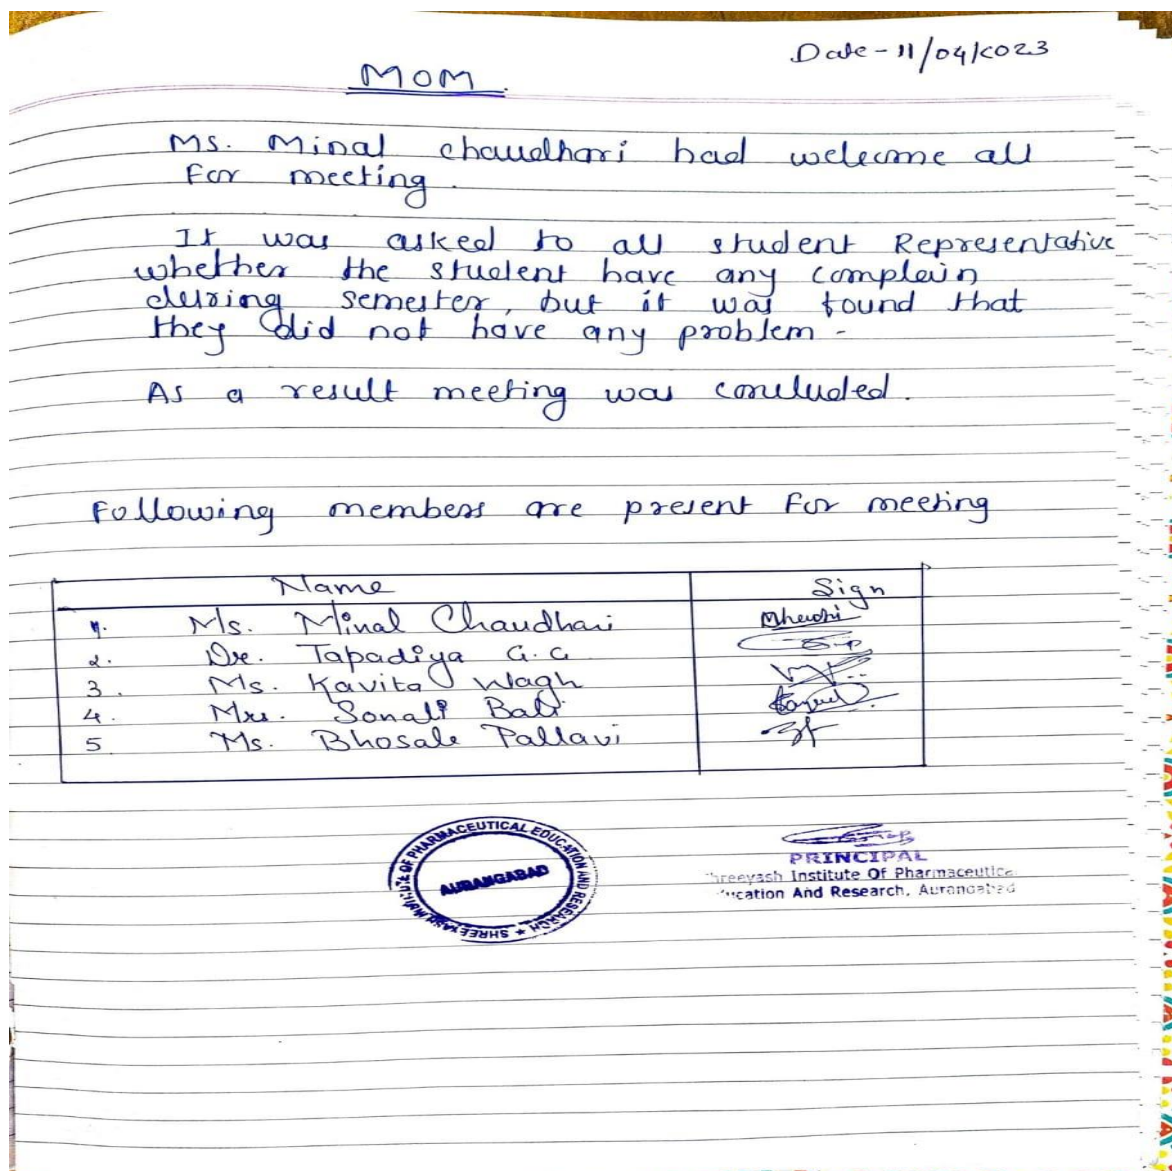 Date - 11/04/2023
MOM
Ms. Minal chaudhari had welcome all
For meeting.
It was asked to all student Representative
whether the student have any complain
during semester, but it was found that
they did not have any problem -
As a result meeting was concluded.
Following members are present for meeting
Name Sign
1. Ms. Minal Chaudhari
2. Dr. Tapadiya G. G
3. Ms. Kavita Wagh
4. Mrs. Sonali Bali
5 Ms. Bhosale Pallavi
SHREEYASH INSTITUTE OF PHARMACEUTICAL EDUCATION AND RESEARCH ★
AURANGABAD
PRINCIPAL
hreeyash Institute Of Pharmaceutica
ucation And Research, Aurangabad